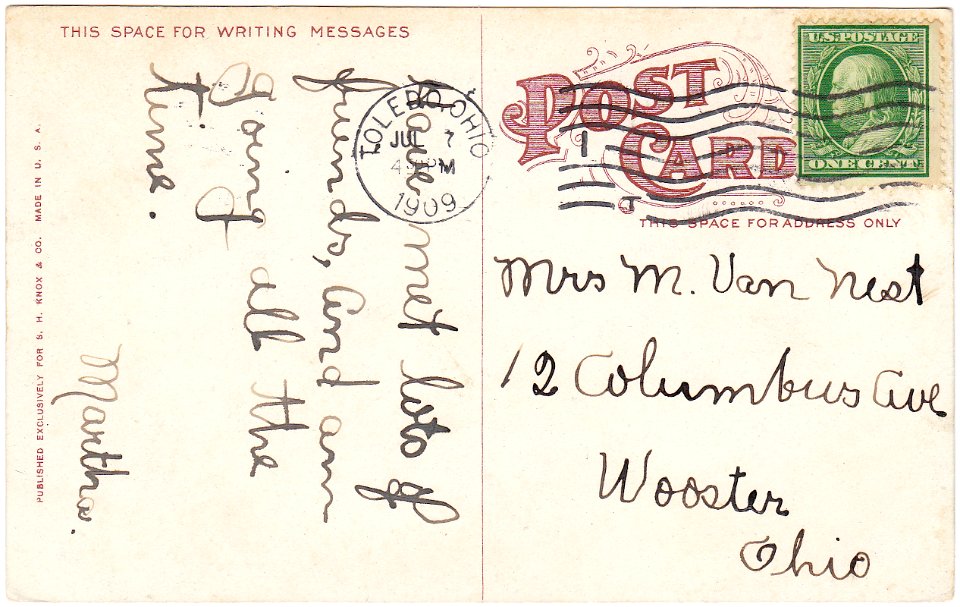 THIS SPACE FOR WRITING MESSAGES
Have met lots of
friends, and am
going all the
time.
Martha.
PUBLISHED EXCLUSIVELY FOR S. H. KNOX & CO. MADE IN U. S. A.
TOLEDO, OHIO
JUL 7
4 PM
1909
1
POST
CARD
U.S. POSTAGE
ONE CENT
THIS SPACE FOR ADDRESS ONLY
Mrs M. Van Nest
12 Columbus Ave
Wooster
Ohio